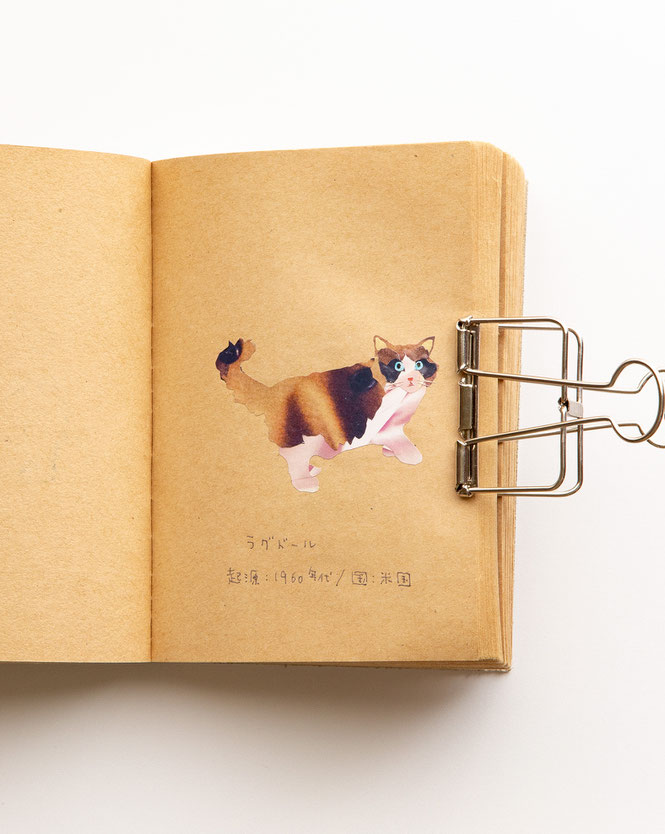 ラグドール
起源:1960年代/国:米国